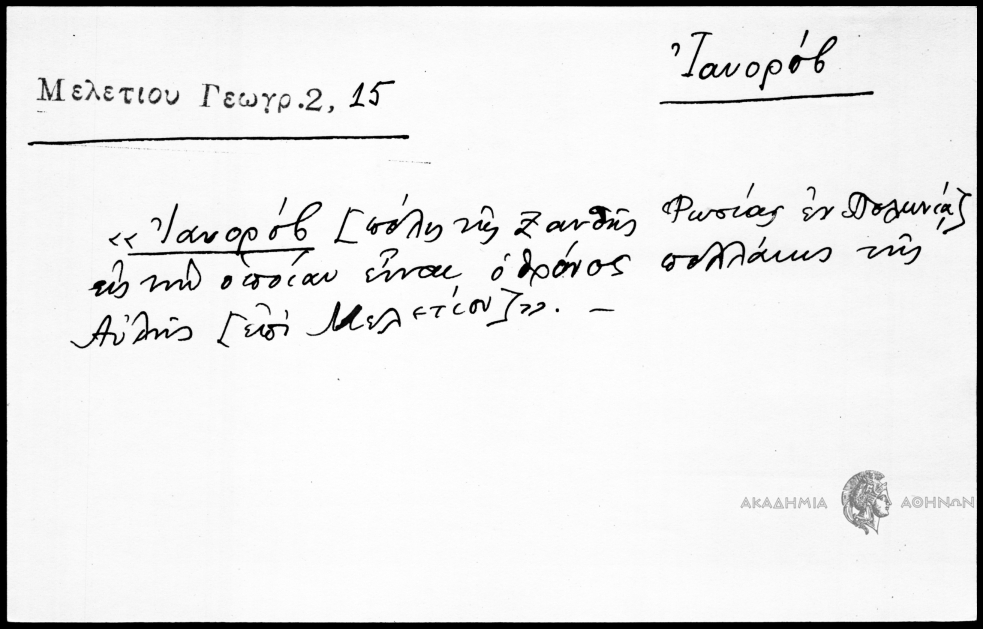 Ἰανορόβ
Μελετιου Γεωγρ.2, 15
«Ἰανορόβ [πόλις τῆς Ξανθῆς Ρωσίας ἐν Πολωνίᾳ]
εἰς τὴν ὁποίαν εἶναι ὁ θρόνος πολλάκις τῆς
Αὐλῆς [ἐπὶ Μελετίου]». –
ΑΚΑΔΗΜΙΑ ΑΘΗΝΩΝ